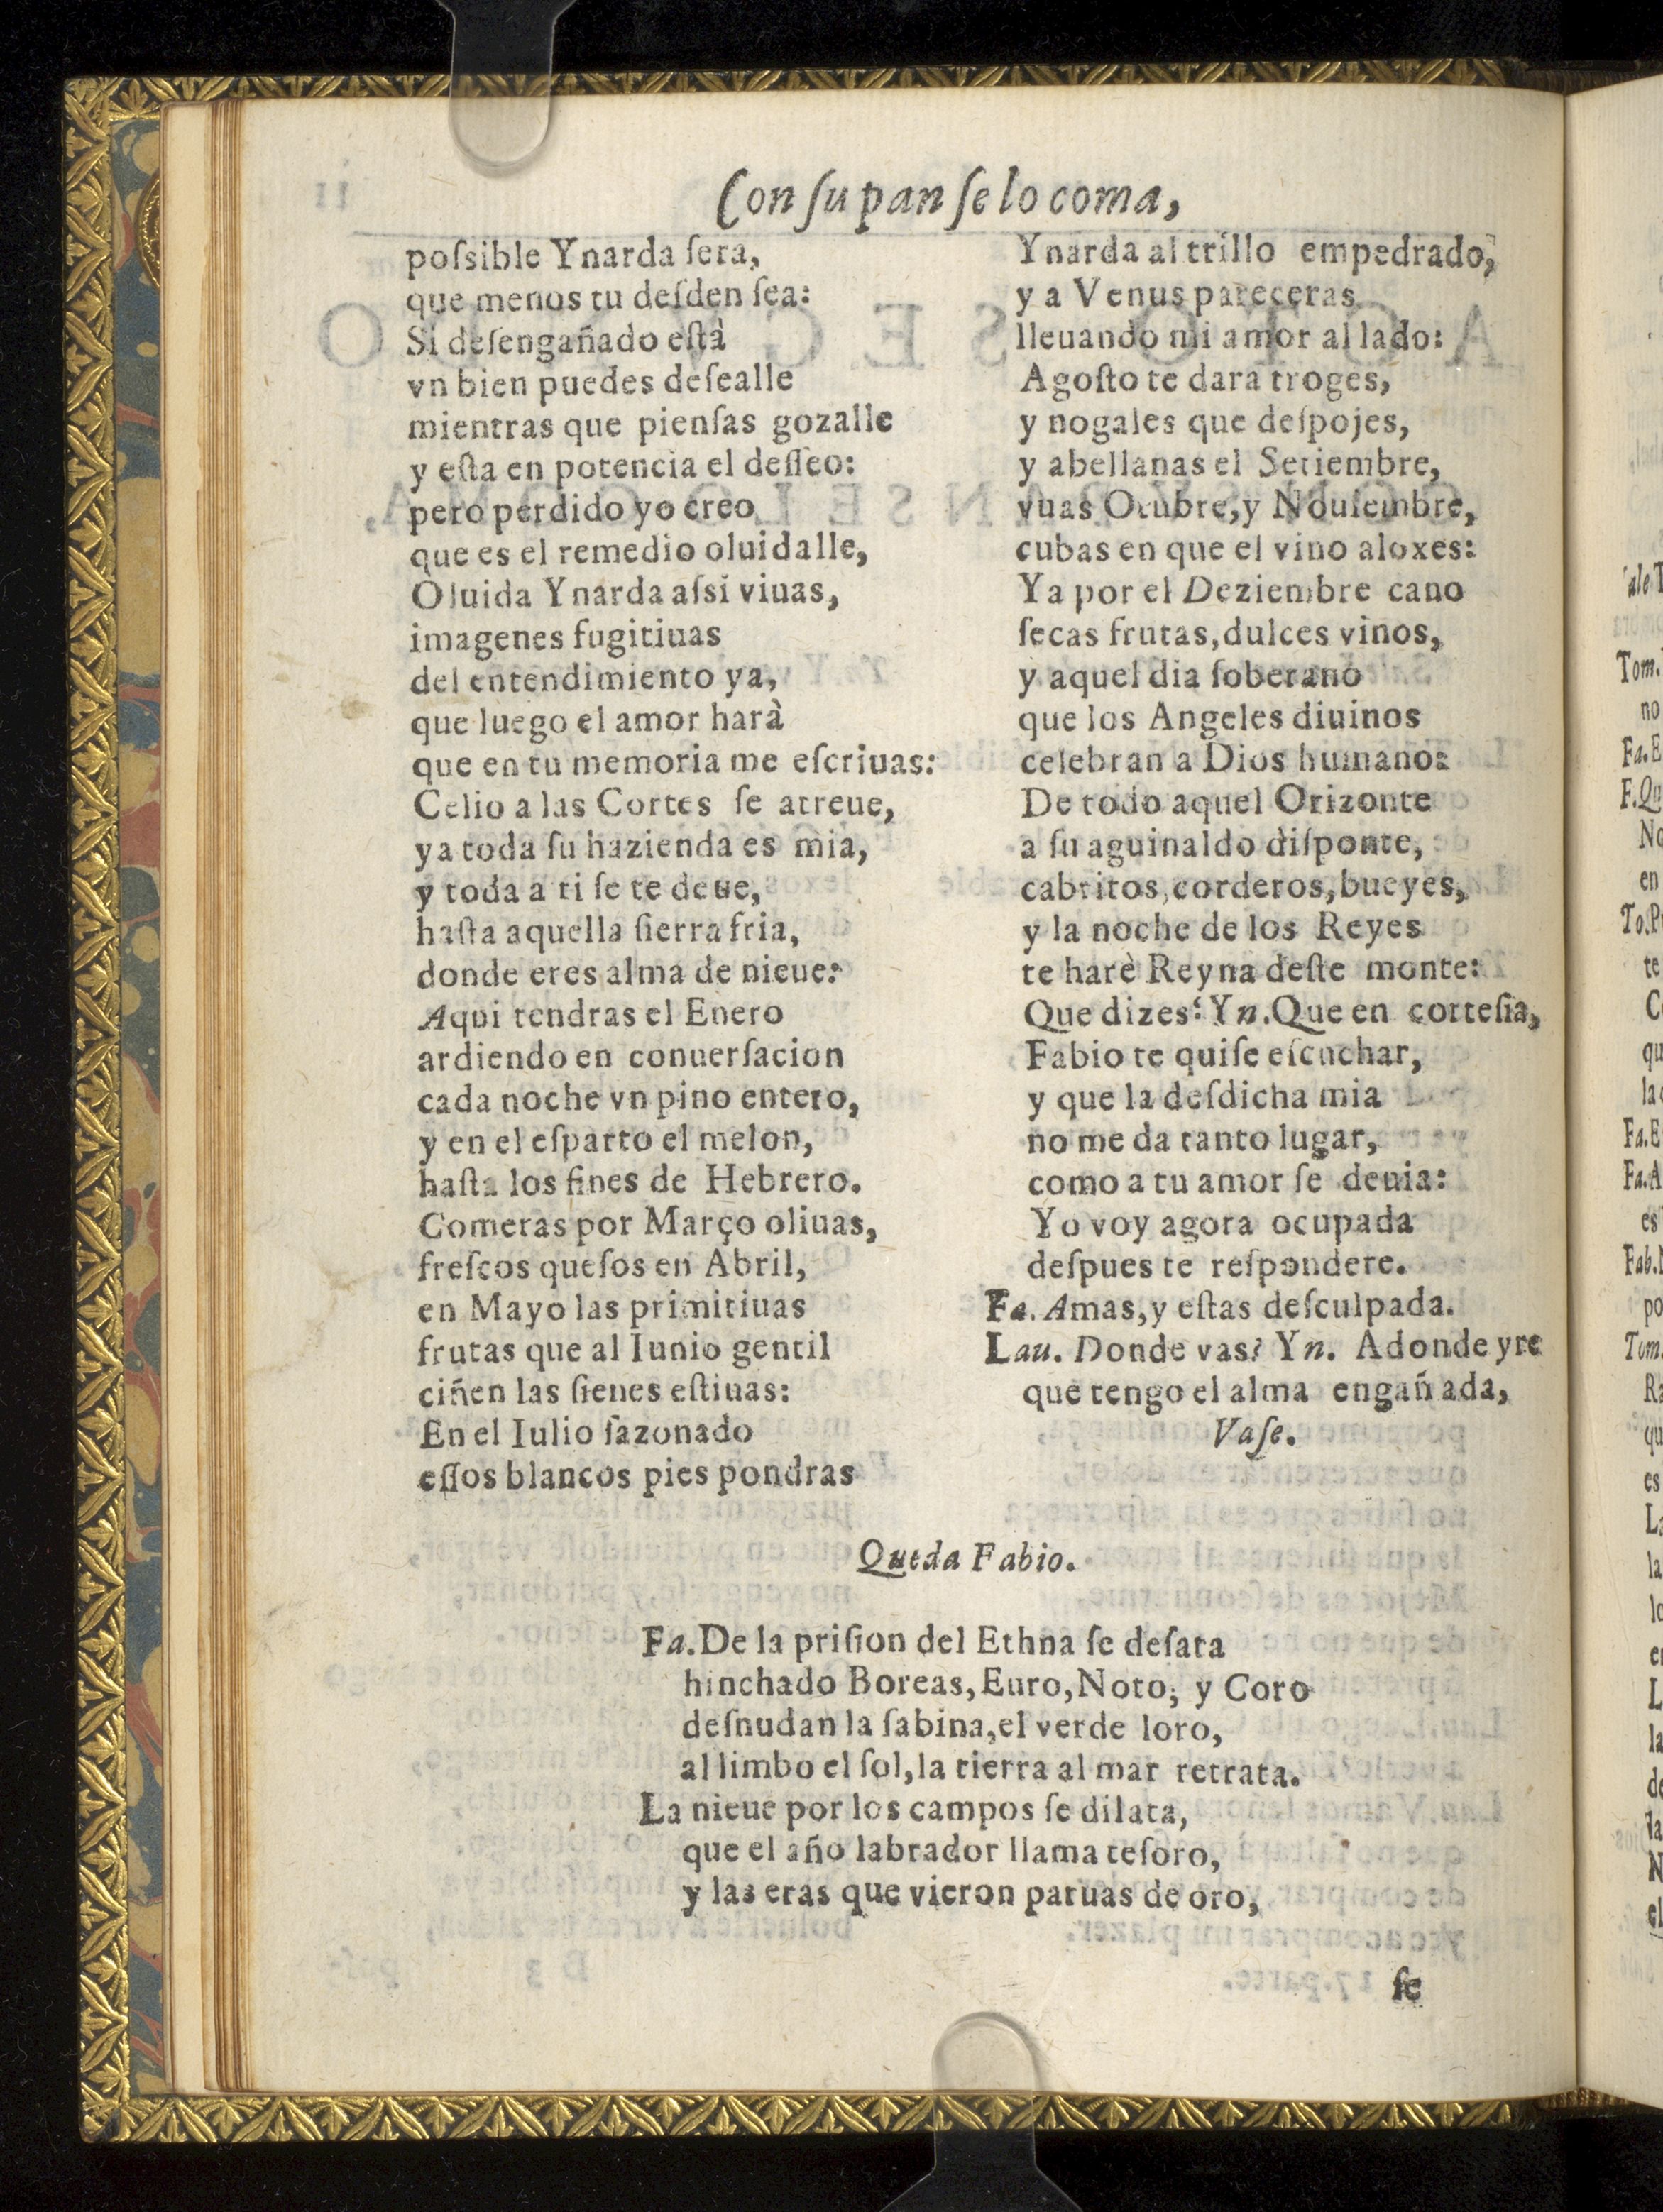 Con ſu pan ſe lo coma,
poſsible Ynarda ſera,
que menos tu deſden ſea:
Si deſengañado eſtà
vn bien puedes deſealle
mientras que pienſas gozalle
y eſta en potencia el deſſeo:
pero perdido yo creo
que es el remedio oluidalle,
Oluida Ynarda aſsi viuas,
imagenes fugitiuas
del entendimiento ya,
que luego el amor harà
que en tu memoria me eſcriuas:
Celio a las Cortes ſe atreue,
ya toda ſu hazienda es mia,
y toda a ti ſe te deue,
haſta aquella ſierra fria,
donde eres alma de nieue:
Aqui tendras el Enero
ardiendo en conuerſacion
cada noche vn pino entero,
y en el eſparto el melon,
haſta los fines de Hebrero.
Comeras por Março oliuas,
freſcos queſos en Abril,
en Mayo las primitiuas
frutas que al Iunio gentil
ciñen las ſienes eſtiuas:
En el Iulio ſazonado
eſſos blancos pies pondras
Ynarda al trillo empedrado,
y a Venus pareceras
lleuando mi amor al lado:
Agoſto te dara troges,
y nogales que deſpojes,
y abellanas el Setiembre,
vuas Otubre, y Nouiembre,
cubas en que el vino aloxes:
Ya por el Deziembre cano
ſecas frutas, dulces vinos,
y aquel dia ſoberano
que los Angeles diuinos
celebran a Dios humano:
De todo aquel Orizonte
a ſu aguinaldo diſponte,
cabritos, corderos, bueyes,
y la noche de los Reyes
te harè Reyna deſte monte:
Que dizes? Yn. Que en corteſia,
Fabio te quiſe eſcuchar,
y que la deſdicha mia
no me da tanto lugar,
como a tu amor ſe deuia:
Yo voy agora ocupada
deſpues te reſpondere.
Fa. Amas, y eſtas deſculpada.
Lau. Donde vas? Yn. Adonde yre
que tengo el alma engañada,
Vaſe.
Queda Fabio.
Fa. De la priſion del Ethna ſe deſata
hinchado Boreas, Euro, Noto, y Coro
deſnudan la ſabina, el verde loro,
al limbo el ſol, la tierra al mar retrata.
La nieue por los campos ſe dilata,
que el año labrador llama teſoro,
y las eras que vieron paruas de oro,
ſe